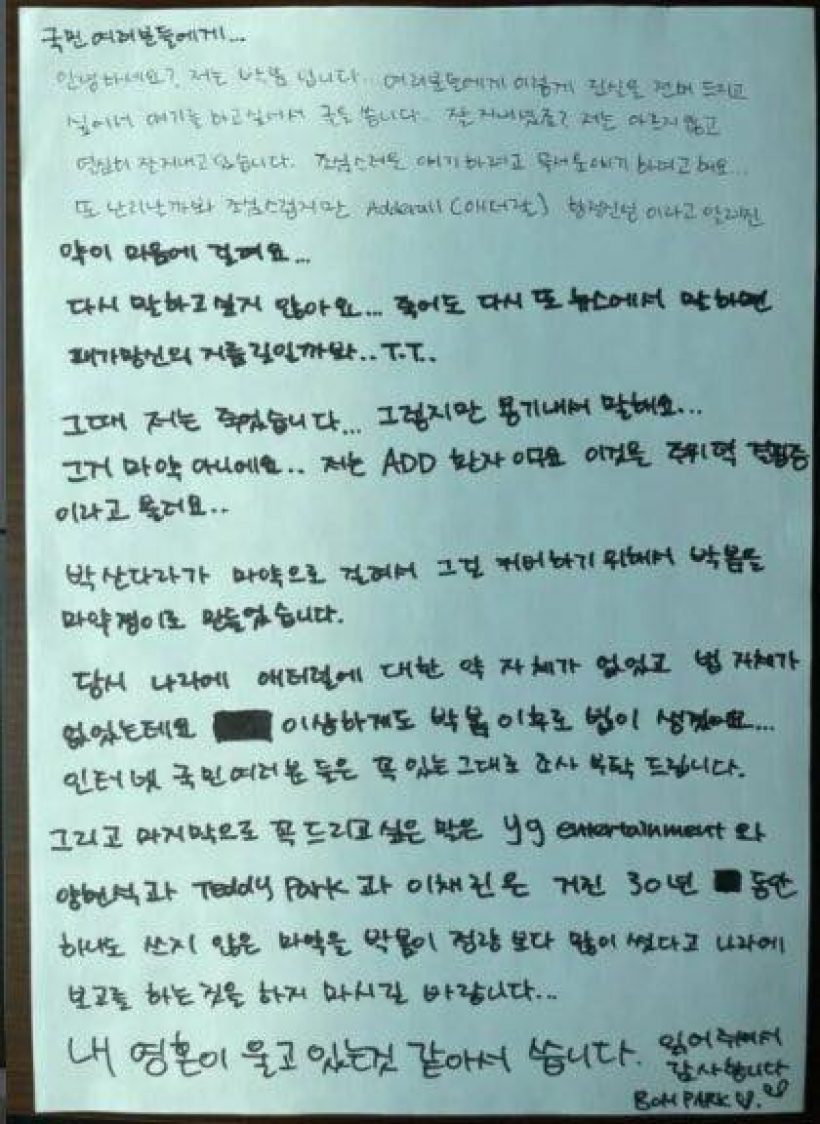 국민 여러분들에게...
안녕하세요? 저는 박봄 입니다.. 여러분들에게 이렇게 진실을 전해 드리고
싶어서 얘기를 하고싶어서 글을 씁니다. 잘 지내셨죠? 저는 아프지 않고
열심히 잘지내고 있습니다. 조심스러운 얘기하려고 무서운얘기 하려고 해요...
또 난리난까봐 조심스럽지만 Adderall (애더럴) 향정신성 이라고 알려진
약이 마음에 걸려요...
다시 말하고싶지 않아요... 죽어도 다시 또 뉴스에서 말하면
패가망신의 지름길일까봐.. T.T.
그때 저는 죽었습니다... 그렇지만 용기내서 말해요...
그거 마약 아니에요.. 저는 ADD 환자 이구요 이것은 주위력 결핍증
이라고 불려요..
박산다라가 마약으로 걸려서 그걸 커버하기 위해서 박봄을
마약쟁이로 만들었습니다.
당시 나라에 애더럴에 대한 약 자체가 없었고 법 자체가
없었는데요 이상하게도 박봄 이후로 법이 생겼어요...
인터넷 국민여러분 들은 꼭 있는그대로 조사 부탁 드립니다.
그리고 마지막으로 꼭 드리고 싶은 말은 yg entertainment 와
양현석과 Teddy Park 과 이채린은 거진 30년 동안
하나도 쓰지 않은 마약을 박봄이 정량 보다 많이 썼다고 나라에
보고를 하는것을 하지 마시길 바랍니다...
내 영혼이 울고있는것 같아서 씁니다.
읽어주셔서
감사합니다
BOM PARK ♡.